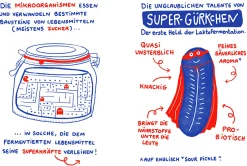 DIE MIKROORGANISMEN ESSEN
UND VERWANDELN BESTIMMTE
BAUSTEINE VON LEBENSMITTELN
(MEISTENS ZUCKER)...
... IN SOLCHE, DIE DEM
FERMENTIERTEN LEBENSMITTEL
SEINE SUPERKRÄFTE VERLEIHEN!
DIE UNGLAUBLICHEN TALENTE VON
SUPER-GÜRKCHEN
Der erste Held der Laktofermentation.
QUASI
UNSTERBLICH
FEINES
SÄUERLICHES
AROMA*
KNACKIG
BRINGT DIE
NÄHRSTOFFE
UNTER
DIE LEUTE
PRO-
BIOTISCH
*AUF ENGLISCH "SOUR PICKLE"!